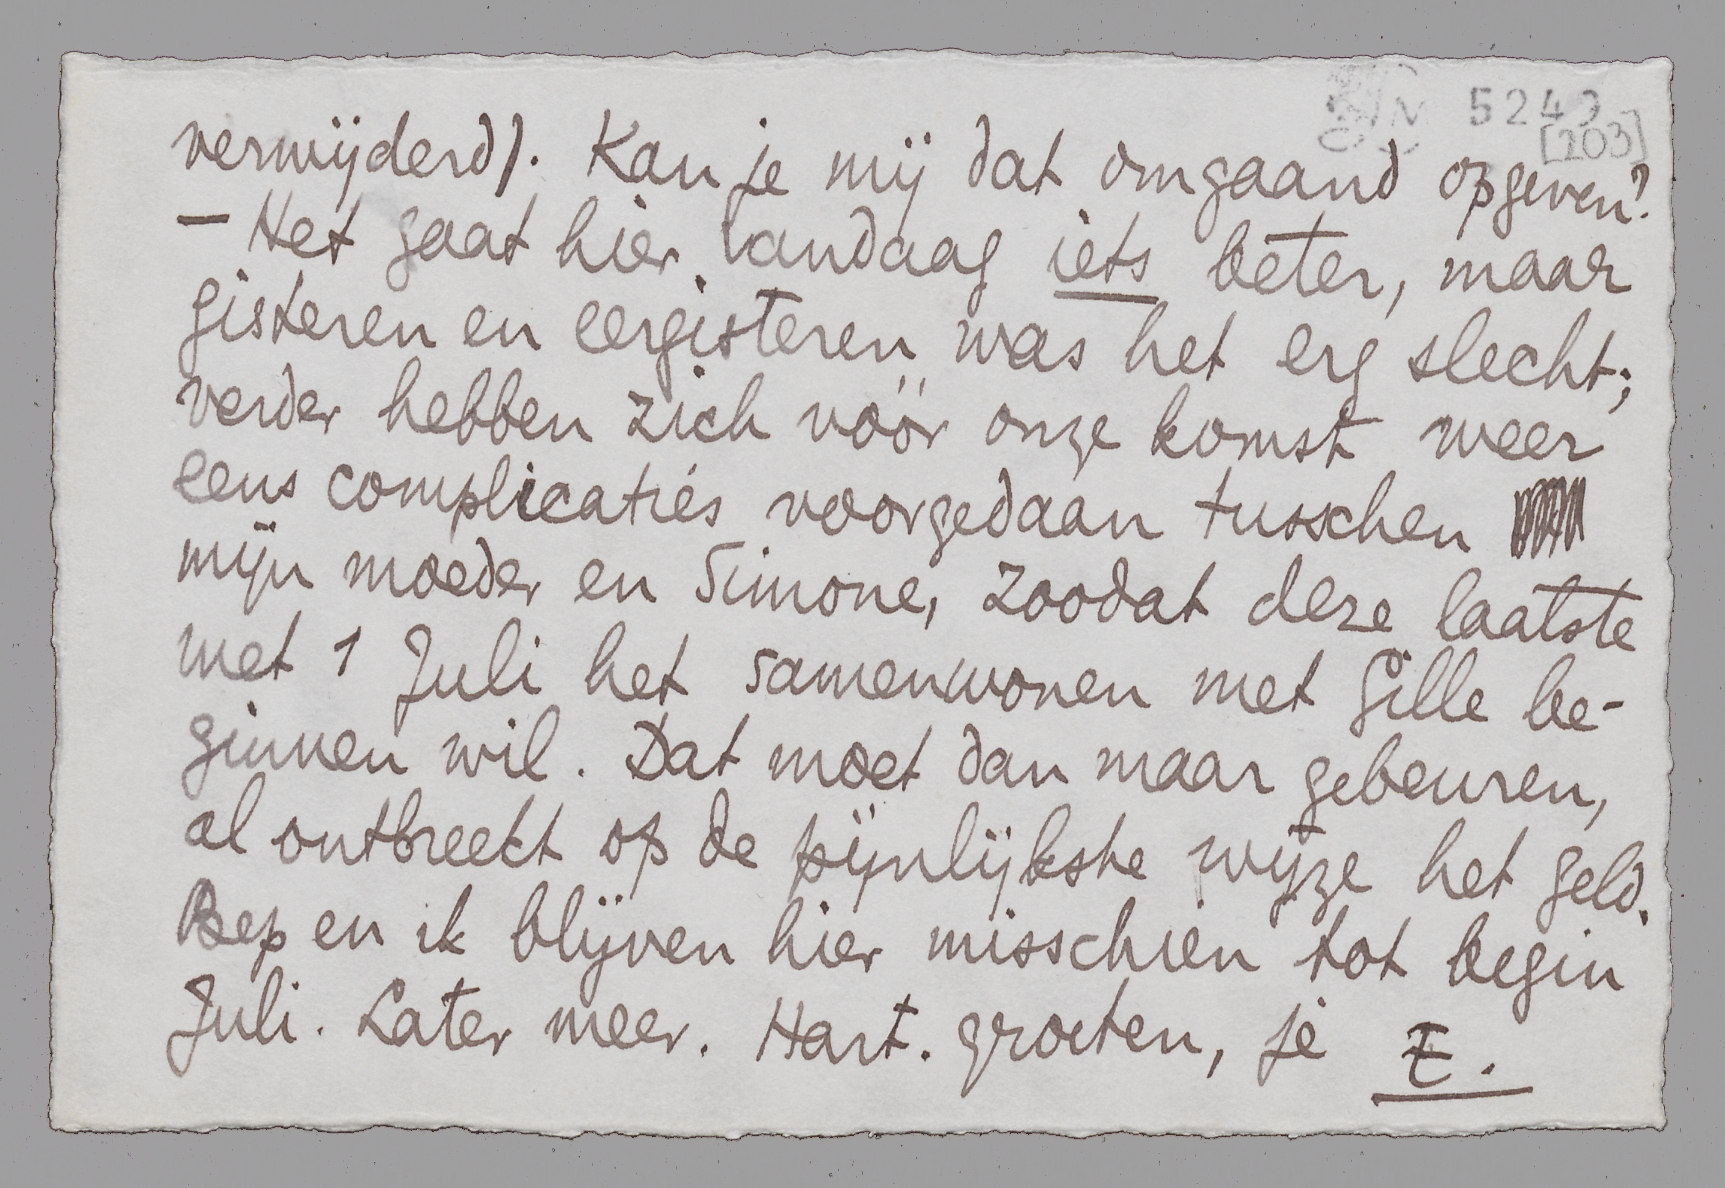 5249
[203]
verwijderd). Kan je mij dat omgaand opgeven?
— Het gaat hier vandaag iets beter, maar
gisteren en eergisteren was het erg slecht;
verder hebben zich vóór onze komst weer
eens complicaties voorgedaan tusschen
mijn moeder en Simone, zoodat deze laatste
met 1 Juli het samenwonen met Gille be-
ginnen wil. Dat moet dan maar gebeuren,
al ontbreekt op de pijnlijkste wijze het geld.
Bep en ik blijven hier misschien tot begin
Juli. Later meer. Hart. groeten, je E.